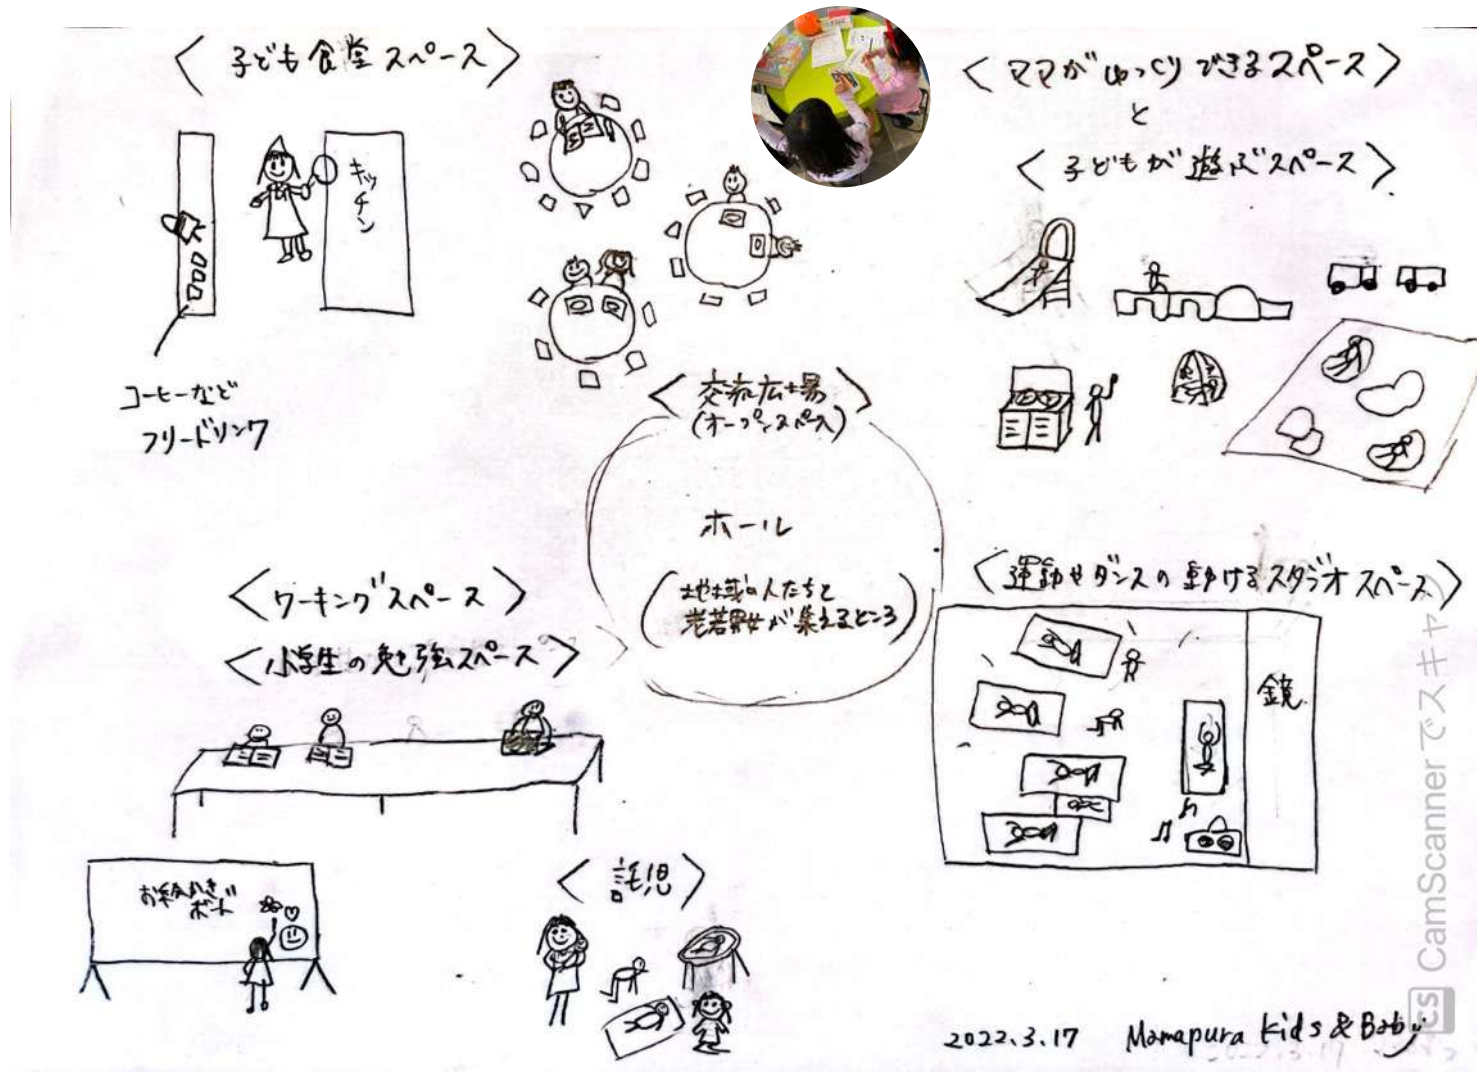 〈子ども食堂スペース〉
キッチン
コーヒーなど
フリードリンク
〈ママがゆっくりできるスペース〉
と
〈子どもが遊ぶスペース〉
〈交流広場〉
(オープンスペース)
ホール
(地域の人たちと
老若男女が集えるところ)
〈ワーキングスペース〉
〈小学生の勉強スペース〉
〈運動やダンスの動けるスタジオスペース〉
鏡
お絵かき
ボード
〈託児〉
2022.3.17 Mamapura Kids & Baby
CS CamScanner でスキャン